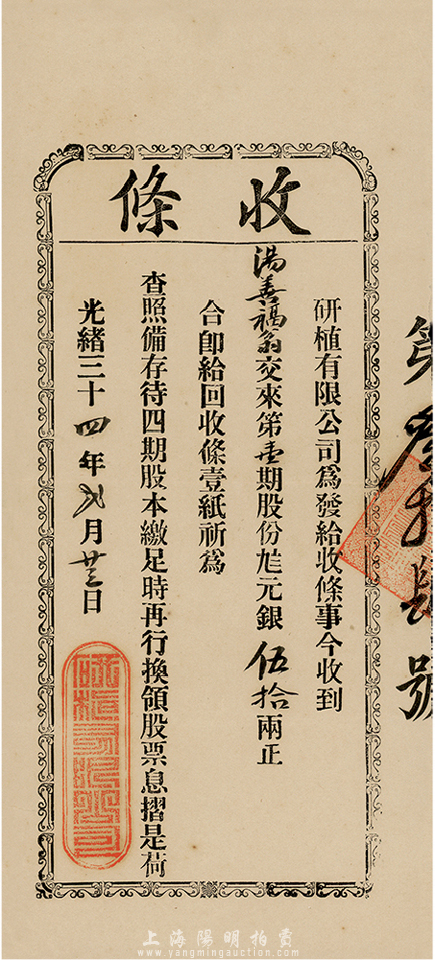 收條
研植有限公司爲發給收條事今收到
湯善禍翁交來第壹期股份尨元銀伍拾兩正
合卽給回收條壹紙祈爲
查照備存待四期股本繳足時再行換領股票息摺是荷
光緒三十四年弍月廿三日
第叁拾肆號
研植有限公司
上海陽明拍賣
www.yangmingauction.com